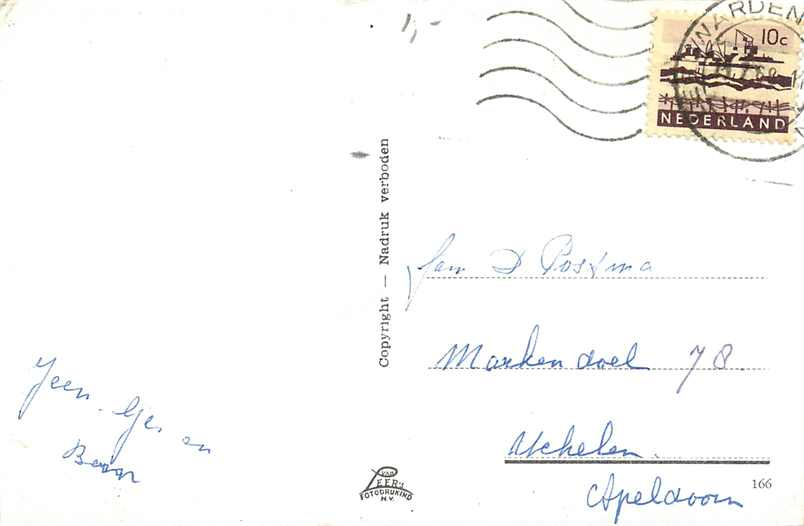 1,-
10c
NEDERLAND
Copyright — Nadruk verboden
Fam D Postma
Markendoel 78.
Uchelen.
Apeldoorn
Jeen. Ger en
VAN
LEER'S
FOTODRUKIND
N.V.
166